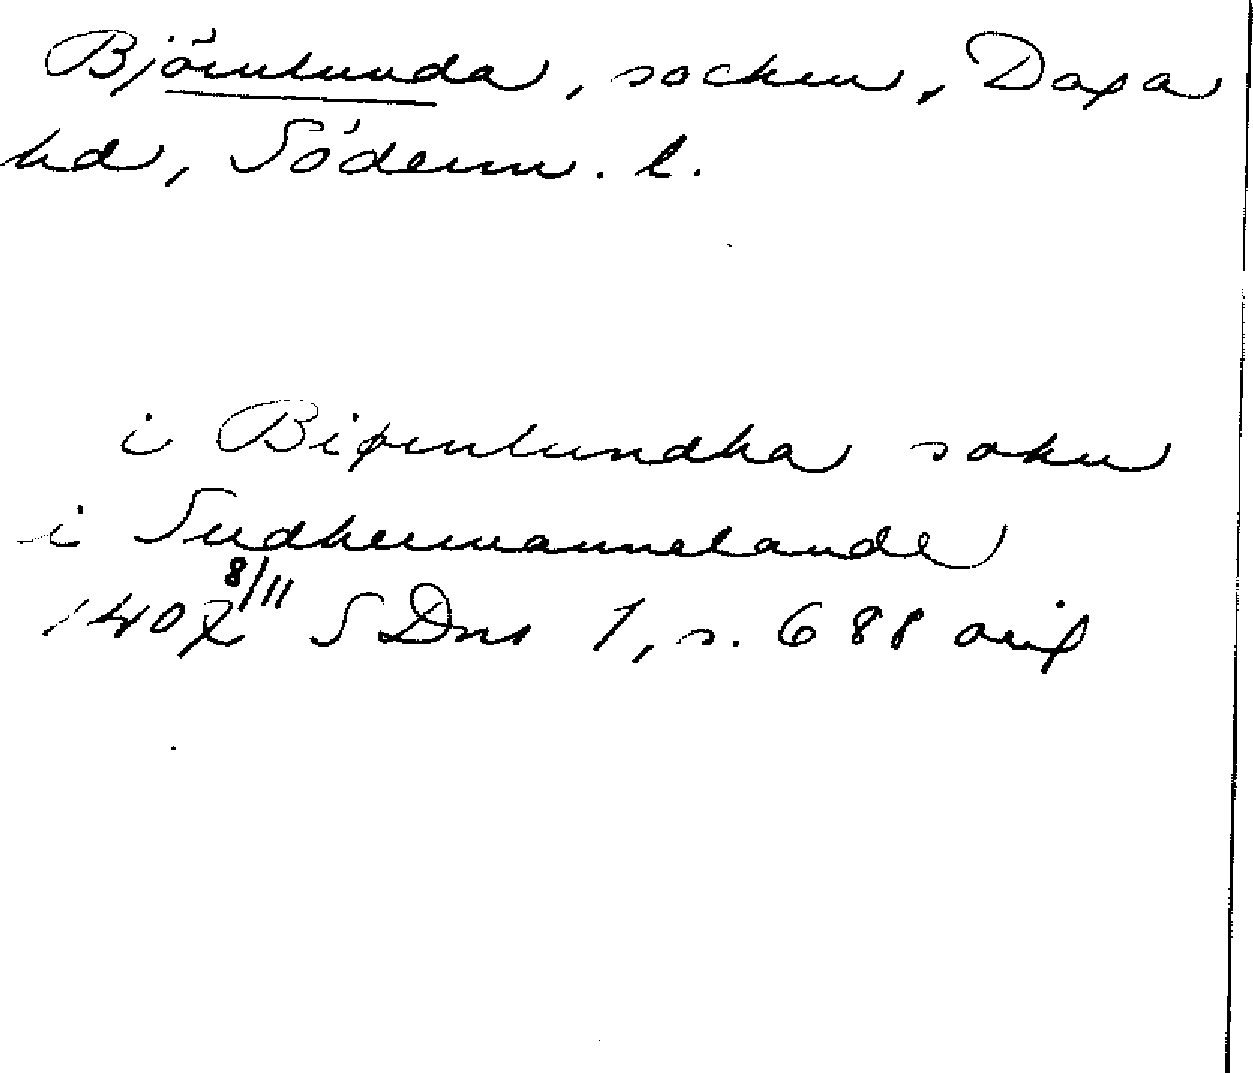 Björnlunda, socken, Daga
hd, Söderm. l.
i Biørnlundha sokn
i Sudhermannalande
1407 8/11 SDns 1, s. 688 orig